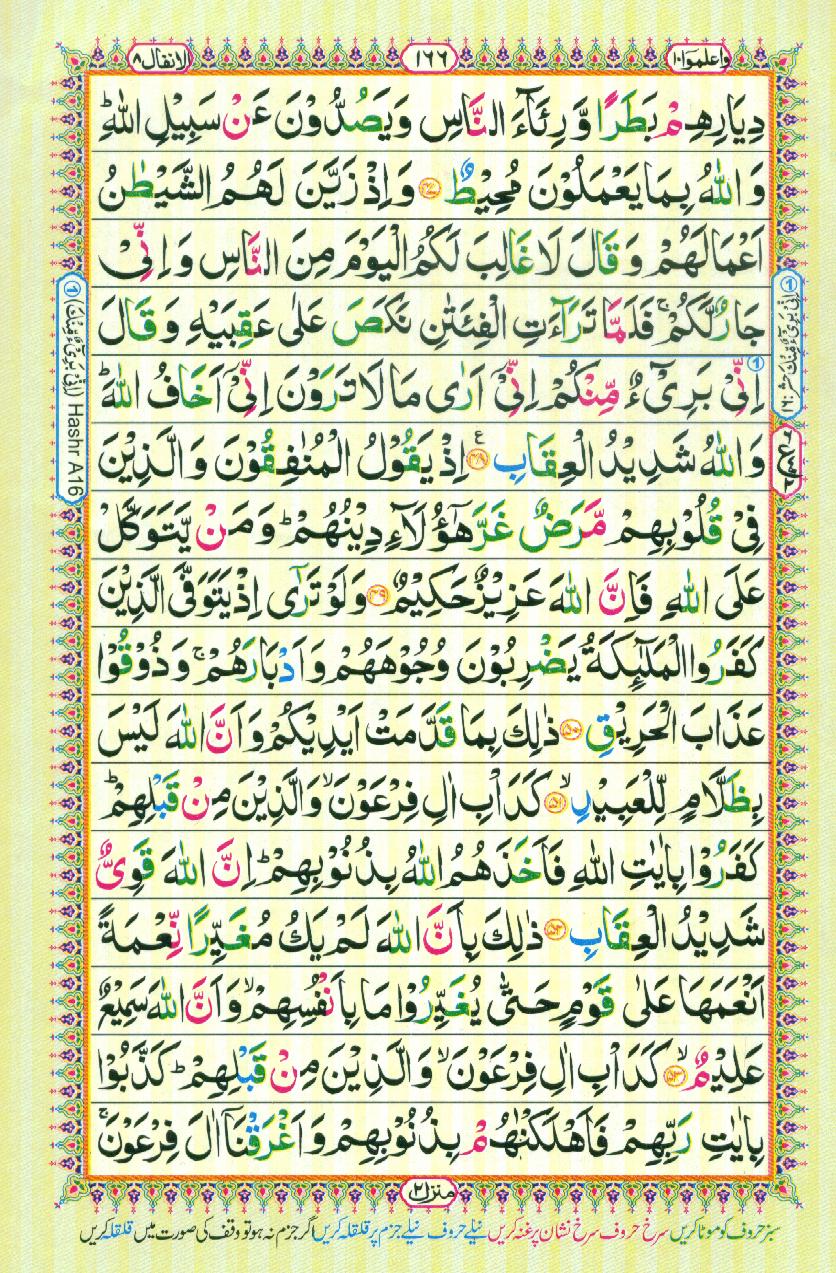 واعلموا ١٠
١٦٦
الانفال ٨
دِيَارِهِمْ بَطَرًا وَّرِئَآءَ النَّاسِ وَيَصُدُّوْنَ عَنْ سَبِيْلِ اللّٰهِ ؕ
وَاللّٰهُ بِمَا يَعْمَلُوْنَ مُحِيْطٌ ﴿۴۷﴾ وَاِذْ زَيَّنَ لَهُمُ الشَّيْطٰنُ
اَعْمَالَهُمْ وَقَالَ لَا غَالِبَ لَكُمُ الْيَوْمَ مِنَ النَّاسِ وَاِنِّىْ
جَارٌ لَّكُمْ ۚ فَلَمَّا تَرَآءَتِ الْفِئَتٰنِ نَكَصَ عَلٰى عَقِبَيْهِ وَقَالَ
اِنِّىْ بَرِىْٓءٌ مِّنْكُمْ اِنِّىْٓ اَرٰى مَا لَا تَرَوْنَ اِنِّىْٓ اَخَافُ اللّٰهَ ؕ
وَاللّٰهُ شَدِيْدُ الْعِقَابِ ﴿۴۸﴾ ع اِذْ يَقُوْلُ الْمُنٰفِقُوْنَ وَالَّذِيْنَ
فِىْ قُلُوْبِهِمْ مَّرَضٌ غَرَّ هٰٓؤُلَآءِ دِيْنُهُمْ ؕ وَمَنْ يَّتَوَكَّلْ
عَلَى اللّٰهِ فَاِنَّ اللّٰهَ عَزِيْزٌ حَكِيْمٌ ﴿۴۹﴾ وَلَوْ تَرٰٓى اِذْ يَتَوَفَّى الَّذِيْنَ
كَفَرُوا الْمَلٰٓئِكَةُ يَضْرِبُوْنَ وُجُوْهَهُمْ وَاَدْبَارَهُمْ ۚ وَذُوْقُوْا
عَذَابَ الْحَرِيْقِ ﴿۵۰﴾ ذٰلِكَ بِمَا قَدَّمَتْ اَيْدِيْكُمْ وَاَنَّ اللّٰهَ لَيْسَ
بِظَلَّامٍ لِّلْعَبِيْدِ ۙ﴿۵۱﴾ كَدَاْبِ اٰلِ فِرْعَوْنَ ۙ وَالَّذِيْنَ مِنْ قَبْلِهِمْ ؕ
كَفَرُوْا بِاٰيٰتِ اللّٰهِ فَاَخَذَهُمُ اللّٰهُ بِذُنُوْبِهِمْ ؕ اِنَّ اللّٰهَ قَوِىٌّ
شَدِيْدُ الْعِقَابِ ﴿۵۲﴾ ذٰلِكَ بِاَنَّ اللّٰهَ لَمْ يَكُ مُغَيِّرًا نِّعْمَةً
اَنْعَمَهَا عَلٰى قَوْمٍ حَتّٰى يُغَيِّرُوْا مَا بِاَنْفُسِهِمْ ۙ وَاَنَّ اللّٰهَ سَمِيْعٌ
عَلِيْمٌ ۙ﴿۵۳﴾ كَدَاْبِ اٰلِ فِرْعَوْنَ ۙ وَالَّذِيْنَ مِنْ قَبْلِهِمْ ؕ كَذَّبُوْا
بِاٰيٰتِ رَبِّهِمْ فَاَهْلَكْنٰهُمْ بِذُنُوْبِهِمْ وَاَغْرَقْنَآ اٰلَ فِرْعَوْنَ ۚ
① اِنِّىْ بَرِىْٓءٌ مِّنْكَ حشر:١٦
① (اِنِّىْ بَرِىْٓءٌ مِّنْكَ) Hashr A16
منزل ٢
سبز حروف کو موٹا کریں سرخ حروف سرخ نشان پر غنہ کریں نیلے حروف نیلے جزم پر قلقلہ کریں اگر جزم نہ ہو تو وقف کی صورت میں قلقلہ کریں